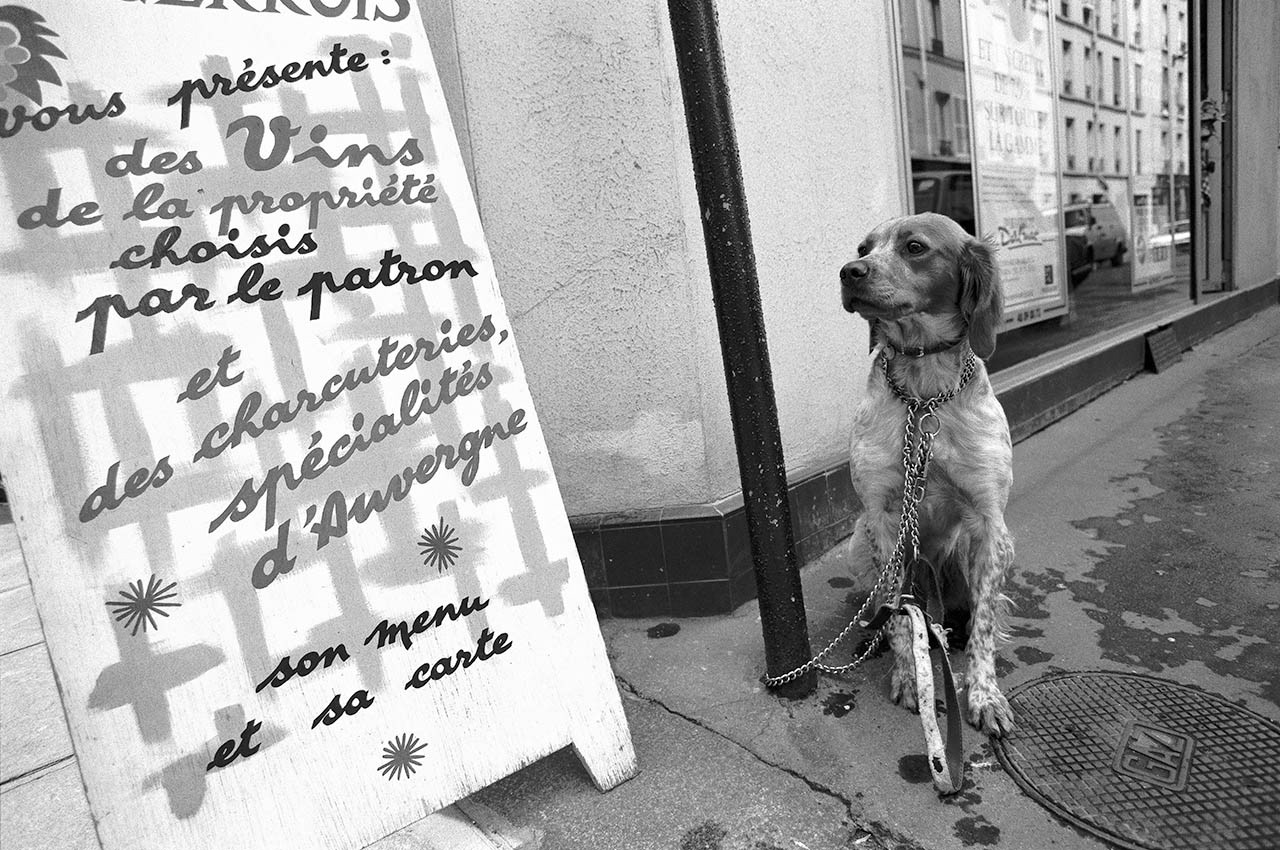 vous présente :
des Vins
de la propriété
choisis
par le patron
et
des charcuteries,
spécialités
d'Auvergne
son menu
et sa carte
ET
SUR TOUTE
LA GAMME